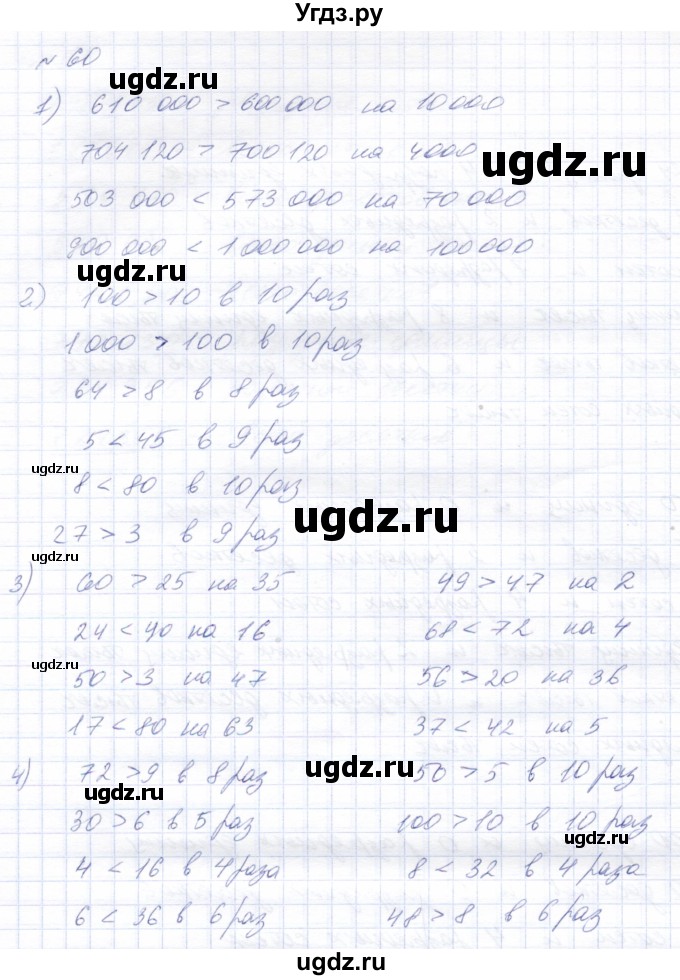 Угдз.ру
№ 60
ugdz.ru
1) 610 000 > 600 000 на 10 000
704 120 > 700 120 на 4000
ugdz.ru
503 000 < 573 000 на 70 000
900 000 < 1 000 000 на 100 000
ugdz.ru
2) 100 > 10 в 10 раз
1 000 > 100 в 10 раз
64 > 8 в 8 раз
5 < 45 в 9 раз
ugdz.ru
8 < 80 в 10 раз
ugdz.ru
27 > 3 в 9 раз
3) 60 > 25 на 35 49 > 47 на 2
24 < 40 на 16 68 < 72 на 4
ugdz.ru
50 > 3 на 47 56 > 20 на 36
17 < 80 на 63 37 < 42 на 5
4) 72 > 9 в 8 раз 50 > 5 в 10 раз
ugdz.ru
ugdz.ru
30 > 6 в 5 раз 100 > 10 в 10 раз
ugdz.ru
4 < 16 в 4 раза 8 < 32 в 4 раза
6 < 36 в 6 раз 48 > 8 в 6 раз
ugdz.ru